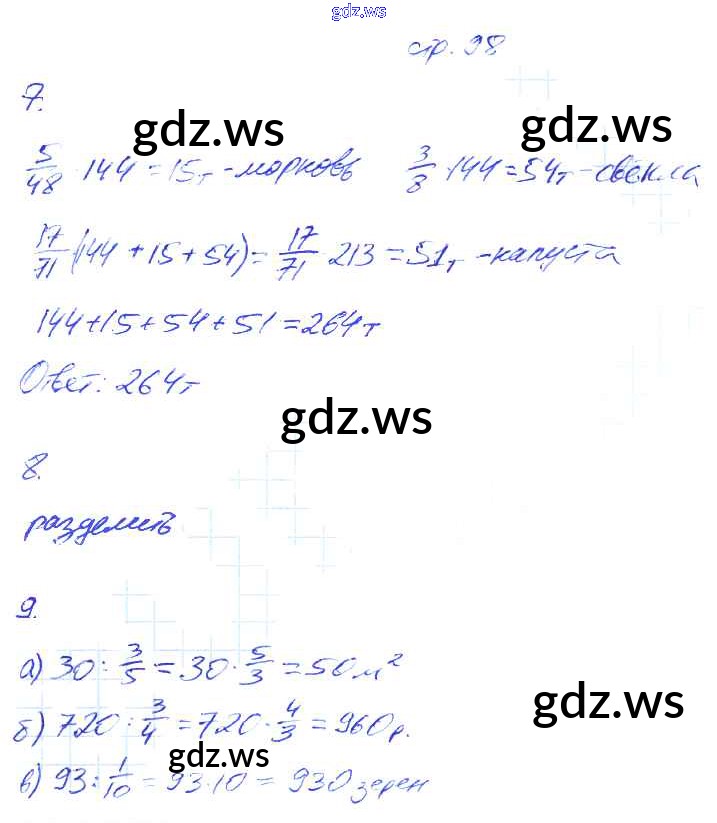 gdz.ws
стр. 98
7.
gdz.ws gdz.ws
5/48 · 144 = 15т - морковь 3/8 · 144 = 54т - свёкла
17/71 (144 + 15 + 54) = 17/71 · 213 = 51т - капуста
144 + 15 + 54 + 51 = 264т
Ответ: 264т
gdz.ws
8.
разделить
9.
а) 30 : 3/5 = 30 · 5/3 = 50 м²
gdz.ws
б) 720 : 3/4 = 720 · 4/3 = 960р.
gdz.ws
в) 93 : 1/10 = 93 · 10 = 930 зерен